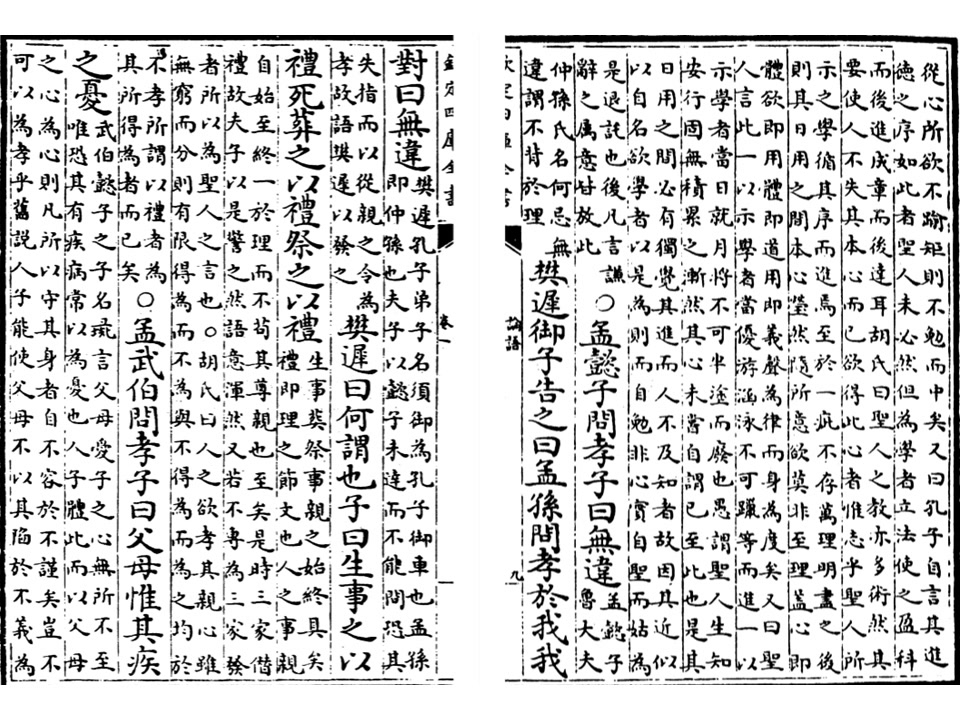 從心所欲不踰矩則不勉而中矣又曰孔子自言其進
德之序如此者聖人未必然但為學者立法使之盈科
而後進成章而後達耳胡氏曰聖人之教亦多術然其
要使人不失其本心而已欲得此心者惟志乎聖人所
示之學循其序而進焉至於一疵不存萬理明盡之後
則其日用之間本心瑩然隨所意欲莫非至理蓋心即
體欲即用體即道用即義聲為律而身為度矣又曰聖
人言此一以示學者當優游涵泳不可躐等而進一以
示學者當日就月將不可半途而廢也愚謂聖人生知
安行固無積累之漸然其心未嘗自謂已至此也是其
日用之間必有獨覺其進而人不及知者故因其近似
以自名欲學者以是為則而自勉非心實自聖而姑為
是退託也後凡言謙
辭之屬意皆放此
○孟懿子問孝子曰無違
孟懿子
魯大夫
仲孫氏名何忌無
違謂不背於理
樊遲御子告之曰孟孫問孝於我我
欽定四庫全書
論語
九
欽定四庫全書
卷一
對曰無違
樊遲孔子弟子名須御為孔子御車也孟孫
即仲孫也夫子以懿子未達而不能問恐其
失指而以從親之令為
孝故語樊遲以發之
樊遲曰何謂也子曰生事之以
禮死葬之以禮祭之以禮
生事葬祭事親之始終具矣
禮即理之節文也人之事親
自始至終一於理而不苟其尊親也至矣是時三家僭
禮故夫子以是警之然語意渾然又若不專為三家發
者所以為聖人之言也○胡氏曰人之欲孝其親心雖
無窮而分則有限得為而不為與不得為而為之均於
不孝所謂以禮者為
其所得為者而已矣
○孟武伯問孝子曰父母惟其疾
之憂
武伯懿子之子名彘言父母愛子之心無所不至
唯恐其有疾病常以為憂也人子體此而以父母
之心為心則凡所以守其身者自不容於不謹矣豈不
可以為孝乎舊說人子能使父母不以其陷於不義為